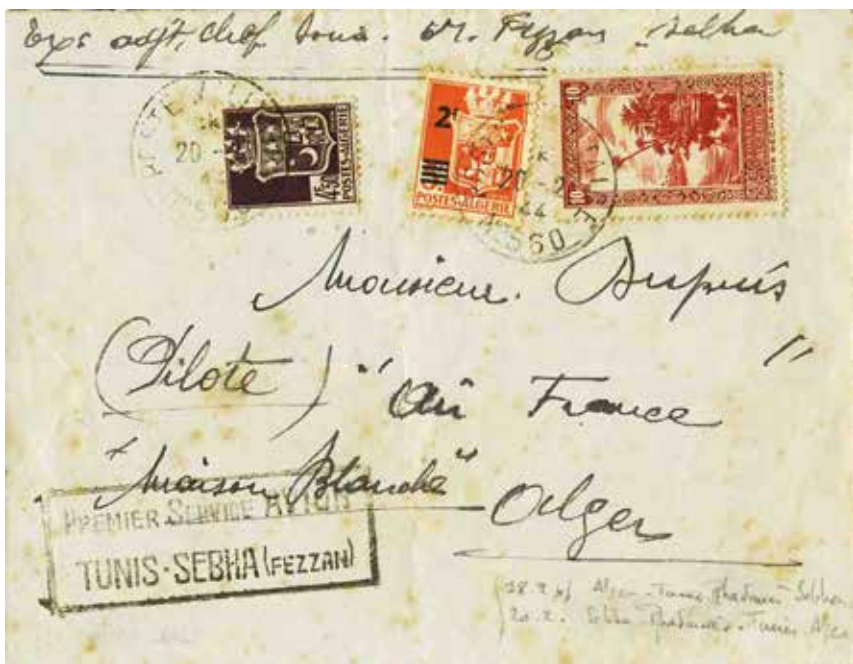 Exp: adjt, chef Fezzan Sebha
POSTE
20
4F50
POSTES-ALGERIE
2F
POSTES-ALGERIE
20 - 2
44
560
10
10
Monsieur. Dupuis
(Pilote) "Air France"
"Maison Blanche"
Alger
PREMIER SERVICE AVION
TUNIS-SEBHA (FEZZAN)
Alger - Tunis Ghadamès Sebha
20.2. Sebha - Ghadamès - Tunis Alger